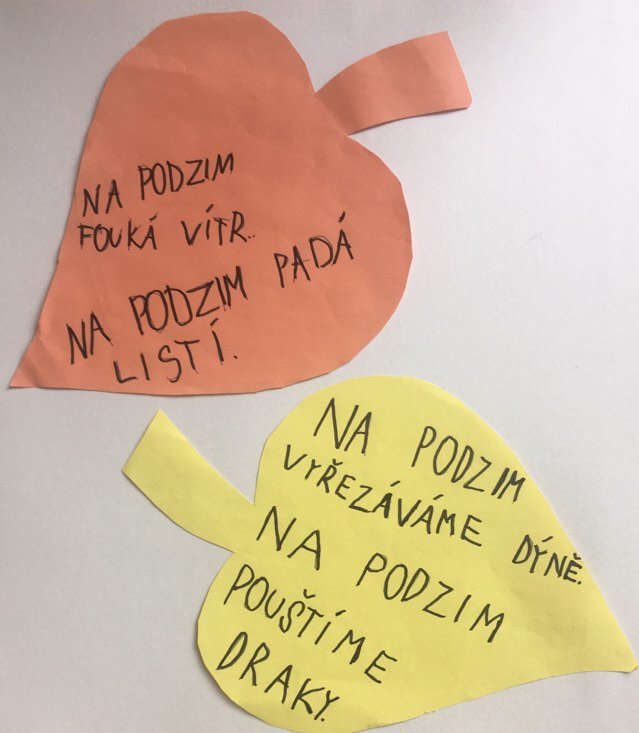 NA PODZIM
FOUKÁ VÍTR..
NA PODZIM PADÁ
LISTÍ.
NA PODZIM
VYŘEZÁVÁME DÝNĚ.
NA PODZIM
POUŠTÍME
DRAKY.